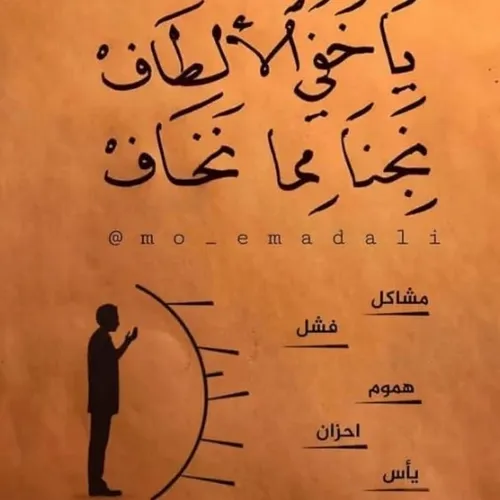 يَا خَفِيَّ الْأَلْطَافْ
نَجِّنَا مِمَّا نَخَافْ
@mo_emadali
مشاكل
فشل
هموم
احزان
يأس